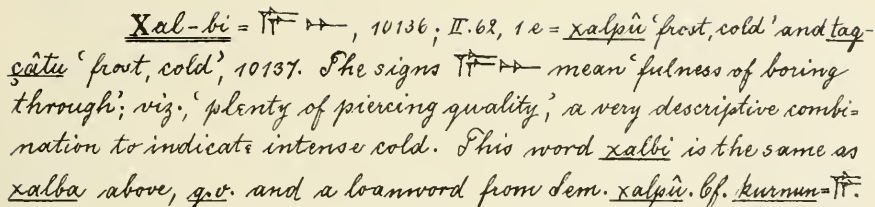 Xal-bi = 𒀀𒅆 𒄬, 10136; II. 62, 1 e = xalpû ‘frost, cold’ and taq-
çâtu ‘frost, cold’, 10137. The signs mean ‘fulness of boring
through’; viz., ‘plenty of piercing quality’, a very descriptive combi=
nation to indicate intense cold. This word xalbi is the same as
xalba above, q.v. and a loanword from Sem. xalpû. Cf. kurnun =